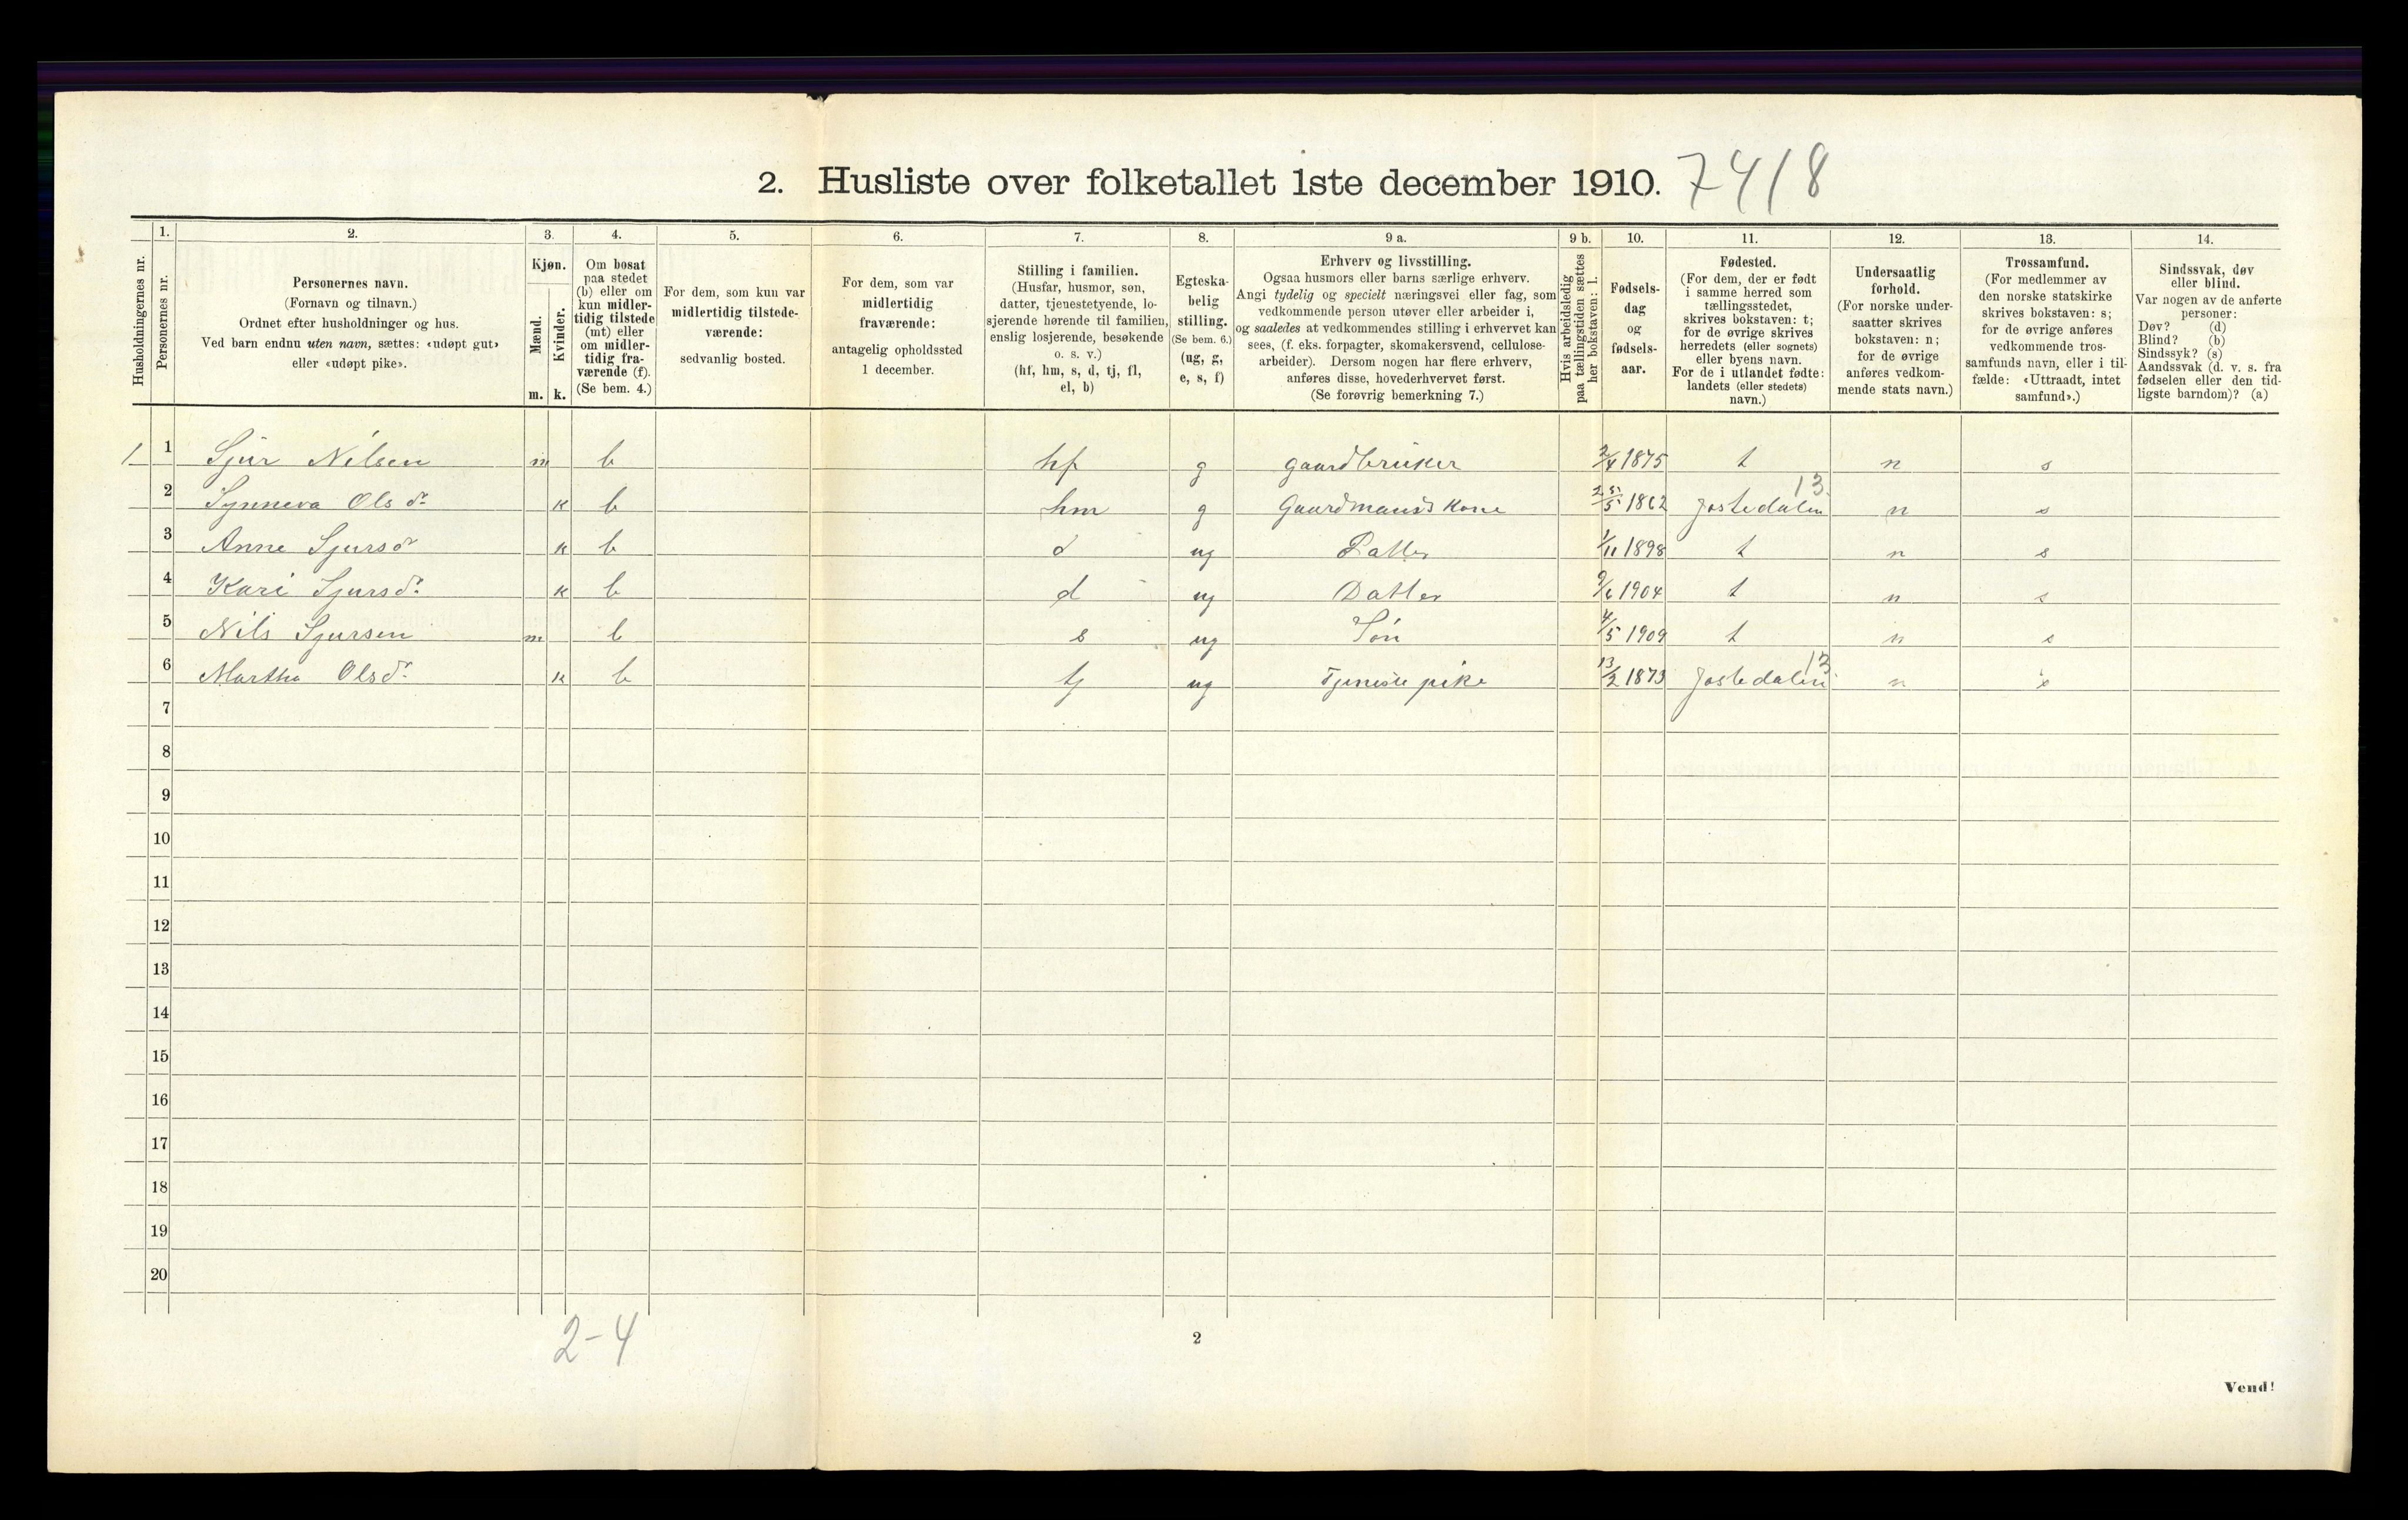 2. Husliste over folketallet 1ste december 1910. 7418
Husholdningernes nr.
1. Personernes nr.
2. Personernes navn.
(Fornavn og tilnavn.)
Ordnet efter husholdninger og hus.
Ved barn endnu uten navn, sættes: «udøpt gut»
eller «udøpt pike».
3. Kjøn.
Mænd. m.
Kvinder. k.
4. Om bosat
paa stedet
(b) eller om
kun midler-
tidig tilstede
(mt) eller
om midler-
tidig fra-
værende (f).
(Se bem. 4.)
5. For dem, som kun var
midlertidig tilstede-
værende:
sedvanlig bosted.
6. For dem, som var
midlertidig
fraværende:
antagelig opholdssted
1 december.
7. Stilling i familien.
(Husfar, husmor, søn,
datter, tjenestetyende, lo-
sjerende hørende til familien,
enslig losjerende, besøkende
o. s. v.)
(hf, hm, s, d, tj, fl,
el, b)
8. Egteska-
belig
stilling.
(Se bem. 6.)
(ug, g,
e, s, f)
9 a. Erhverv og livsstilling.
Ogsaa husmors eller barns særlige erhverv.
Angi tydelig og specielt næringsvei eller fag, som
vedkommende person utøver eller arbeider i,
og saaledes at vedkommendes stilling i erhvervet kan
sees, (f. eks. forpagter, skomakersvend, cellulose-
arbeider). Dersom nogen har flere erhverv,
anføres disse, hovederhvervet først.
(Se forøvrig bemerkning 7.)
9 b. Hvis arbeidsledig
paa tællingstiden sættes
her bokstaven: l.
10. Fødsels-
dag
og
fødsels-
aar.
11. Fødested.
(For dem, der er født
i samme herred som
tællingsstedet,
skrives bokstaven: t;
for de øvrige skrives
herredets (eller sognets)
eller byens navn.
For de i utlandet fødte:
landets (eller stedets)
navn.)
12. Undersaatlig
forhold.
(For norske under-
saatter skrives
bokstaven: n;
for de øvrige
anføres vedkom-
mende stats navn.)
13. Trossamfund.
(For medlemmer av
den norske statskirke
skrives bokstaven: s;
for de øvrige anføres
vedkommende tros-
samfunds navn, eller i til-
fælde: «Uttraadt, intet
samfund».)
14. Sindssvak, døv
eller blind.
Var nogen av de anførte
personer:
Døv? (d)
Blind? (b)
Sindssyk? (s)
Aandssvak (d. v. s. fra
fødselen eller den tid-
ligste barndom)? (a)
1 1 Sjur Nilsen m b hf g gaardbruker 2/4 1875 t n s
2 Synneva Olsdr k b hm g Gaardmands kone 25/5 1862 Jostedalen 13 n s
3 Anne Sjursdr k b d ug Datter 1/11 1898 t n s
4 Kari Sjursdr k b d ug Datter 9/6 1904 t n s
5 Nils Sjursen m b s ug Søn 4/5 1909 t n s
6 Martha Olsdr k b tj ug Tjeneste pike 13/2 1873 Jostedalen 13 n s
7
8
9
10
11
12
13
14
15
16
17
18
19
20
2-4
2
Vend!